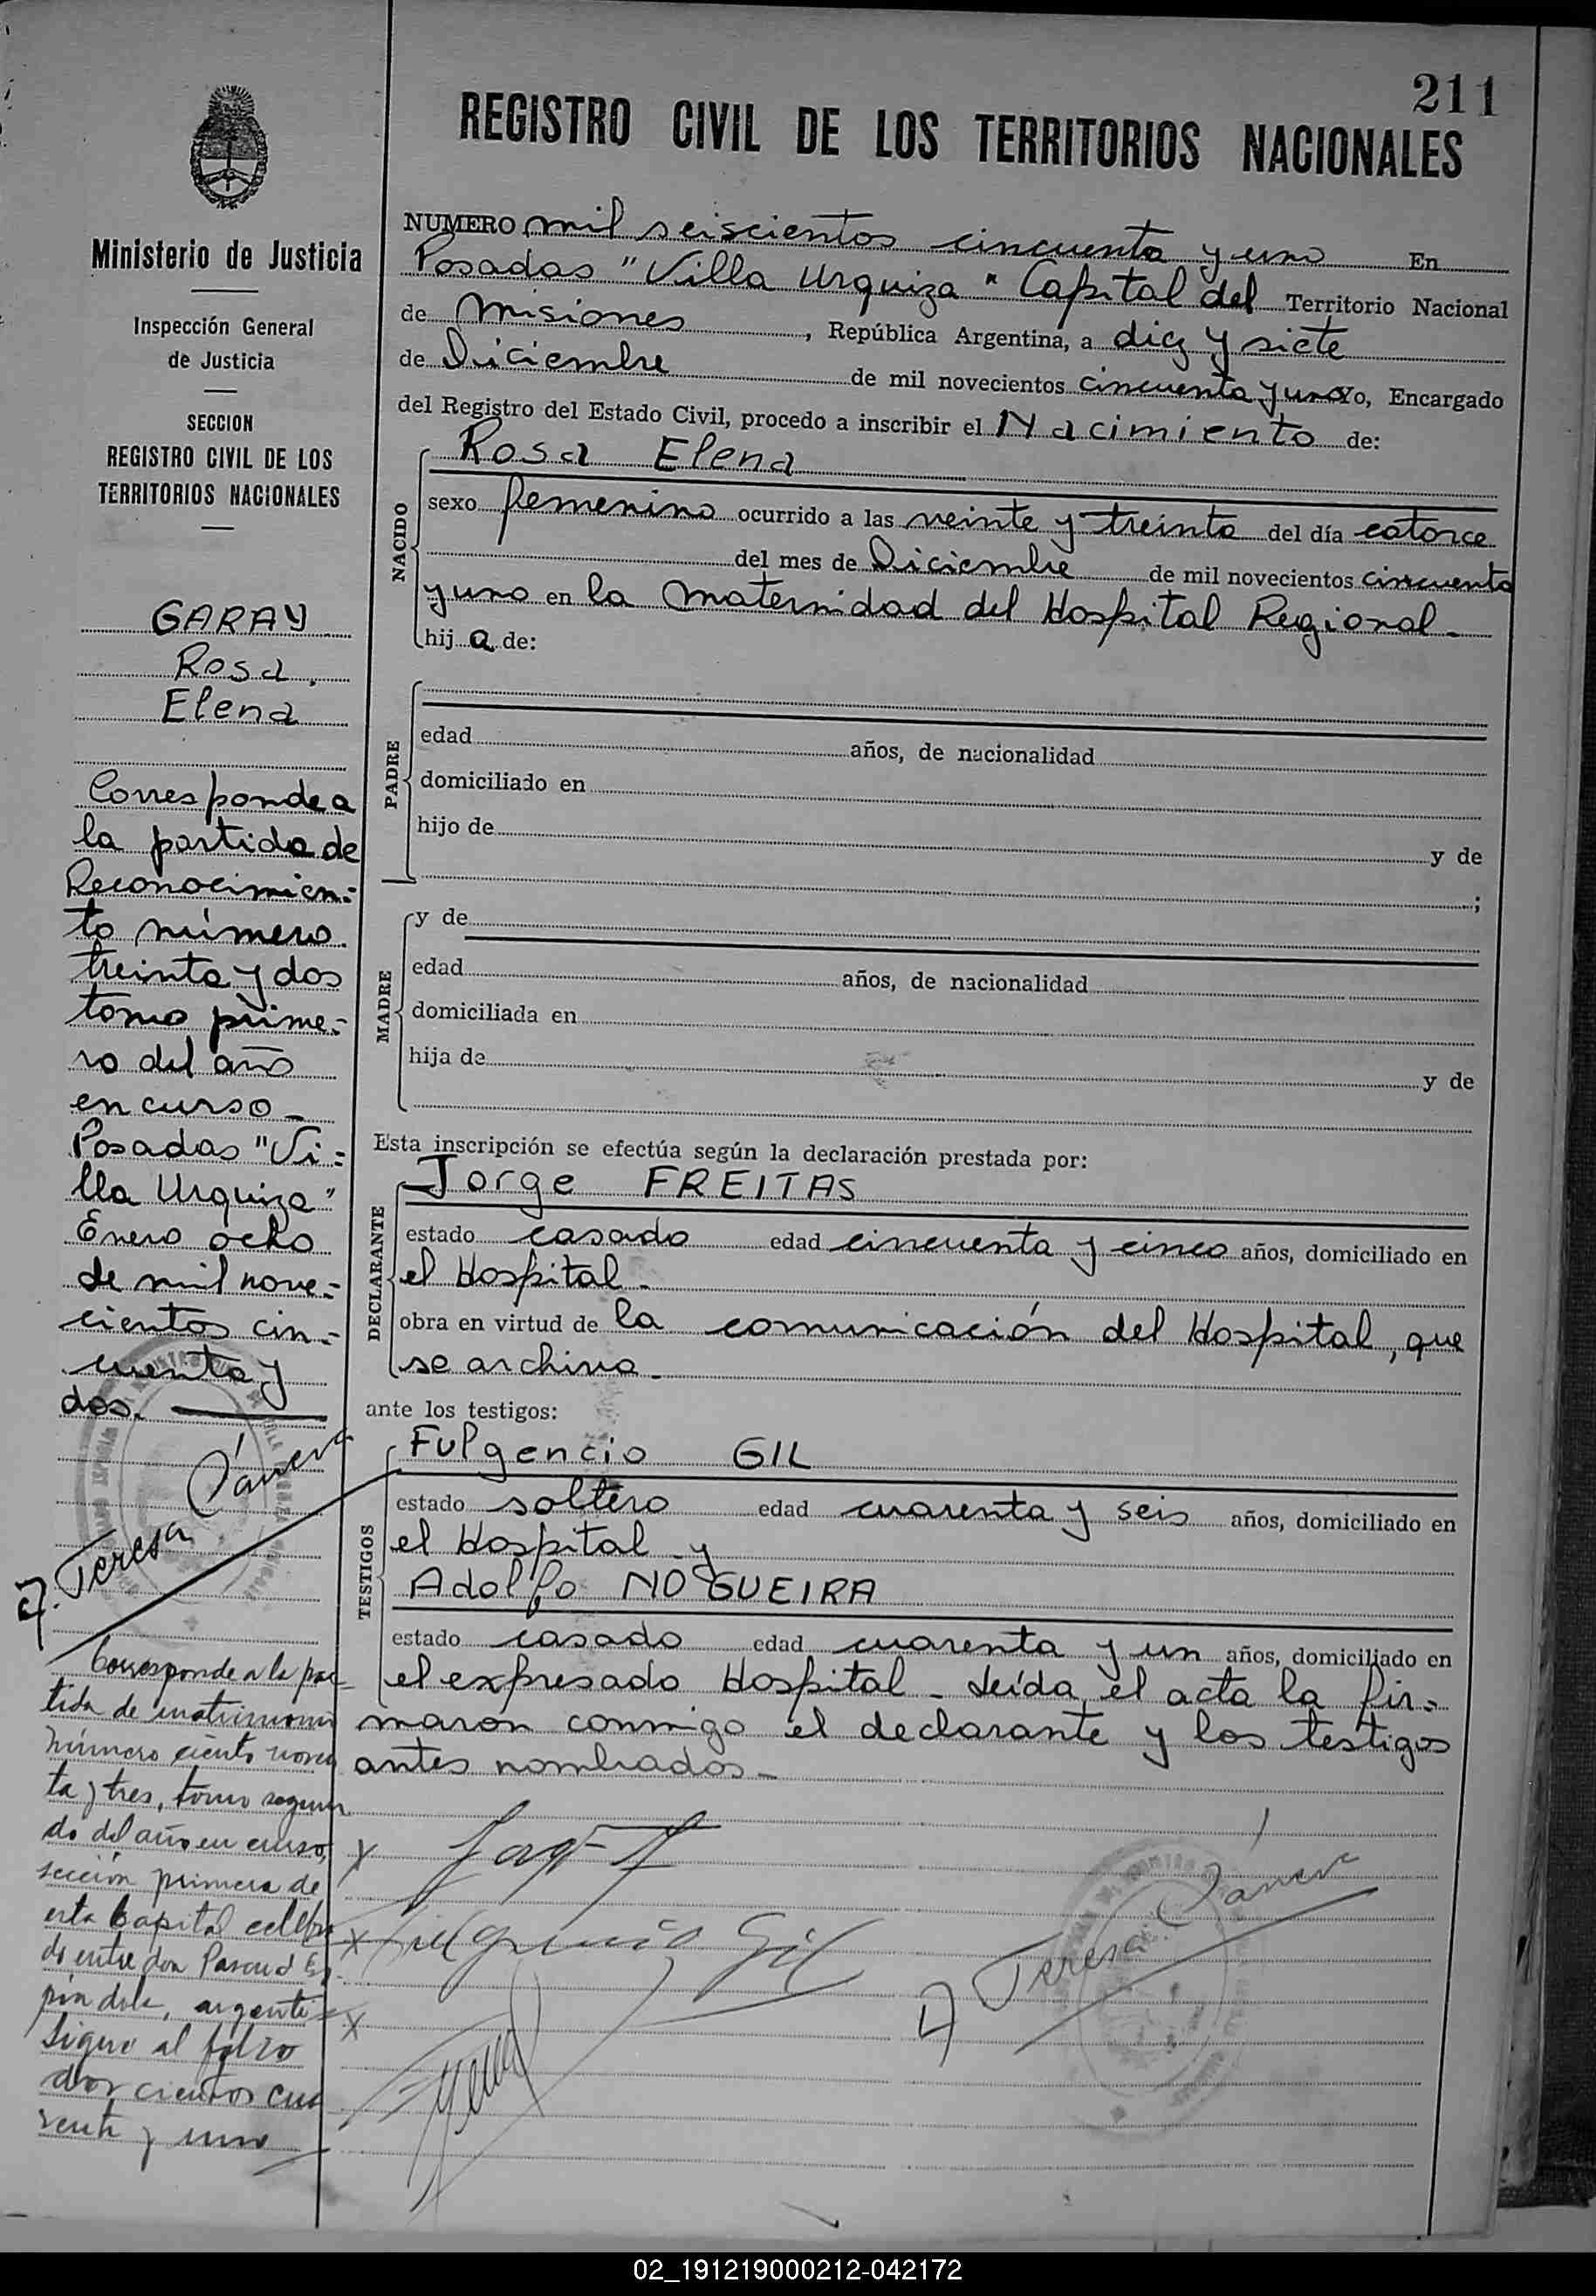 211
REGISTRO CIVIL DE LOS TERRITORIOS NACIONALES
Ministerio de Justicia
Inspección General
de Justicia
SECCION
REGISTRO CIVIL DE LOS
TERRITORIOS NACIONALES
GARAY
Rosa
Elena
Corresponde a
la partida de
Reconocimien=
to número
treinta y dos
tomo prime=
ro del año
en curso_
Posadas "Vi=
lla Urquiza"
Enero ocho
de mil nove=
cientos cin=
cuenta y
dos.
Teresa
Corresponde a la par
tida de matrimonio
número ciento noven
ta y tres, tomo segun
do del año en curso,
sección primera de
esta Capital celebra
do entre don
argenti=
Sigue al folio
doscientos cua
renta y uno
NUMERO mil seiscientos cincuenta y uno En
Posadas "Villa Urquiza" Capital del Territorio Nacional
de Misiones, República Argentina, a diez y siete
de Diciembre de mil novecientos cincuenta y uno Yo, Encargado
del Registro del Estado Civil, procedo a inscribir el Nacimiento de:
NACIDO
Rosa Elena
sexo femenino ocurrido a las veinte y treinta del día catorce
del mes de Diciembre de mil novecientos cincuenta
y uno en la Maternidad del Hospital Regional_
hija de:
PADRE
edad años, de nacionalidad
domiciliado en
hijo de y de
;
MADRE
y de
edad años, de nacionalidad
domiciliada en
hija de y de
Esta inscripción se efectúa según la declaración prestada por:
DECLARANTE
Jorge FREITAS
estado casado edad cincuenta y cinco años, domiciliado en
el Hospital_
obra en virtud de la comunicación del Hospital, que
se archiva_
ante los testigos:
TESTIGOS
Fulgencio GIL
estado soltero edad cuarenta y seis años, domiciliado en
el Hospital y
Adolfo NOGUEIRA
estado casado edad cuarenta y un años, domiciliado en
el expresado Hospital_ Leída el acta la fir=
maron conmigo el declarante y los testigos
antes nombrados_
x
x Fulgencio Gil
x
Teresa
02_191219000212-042172